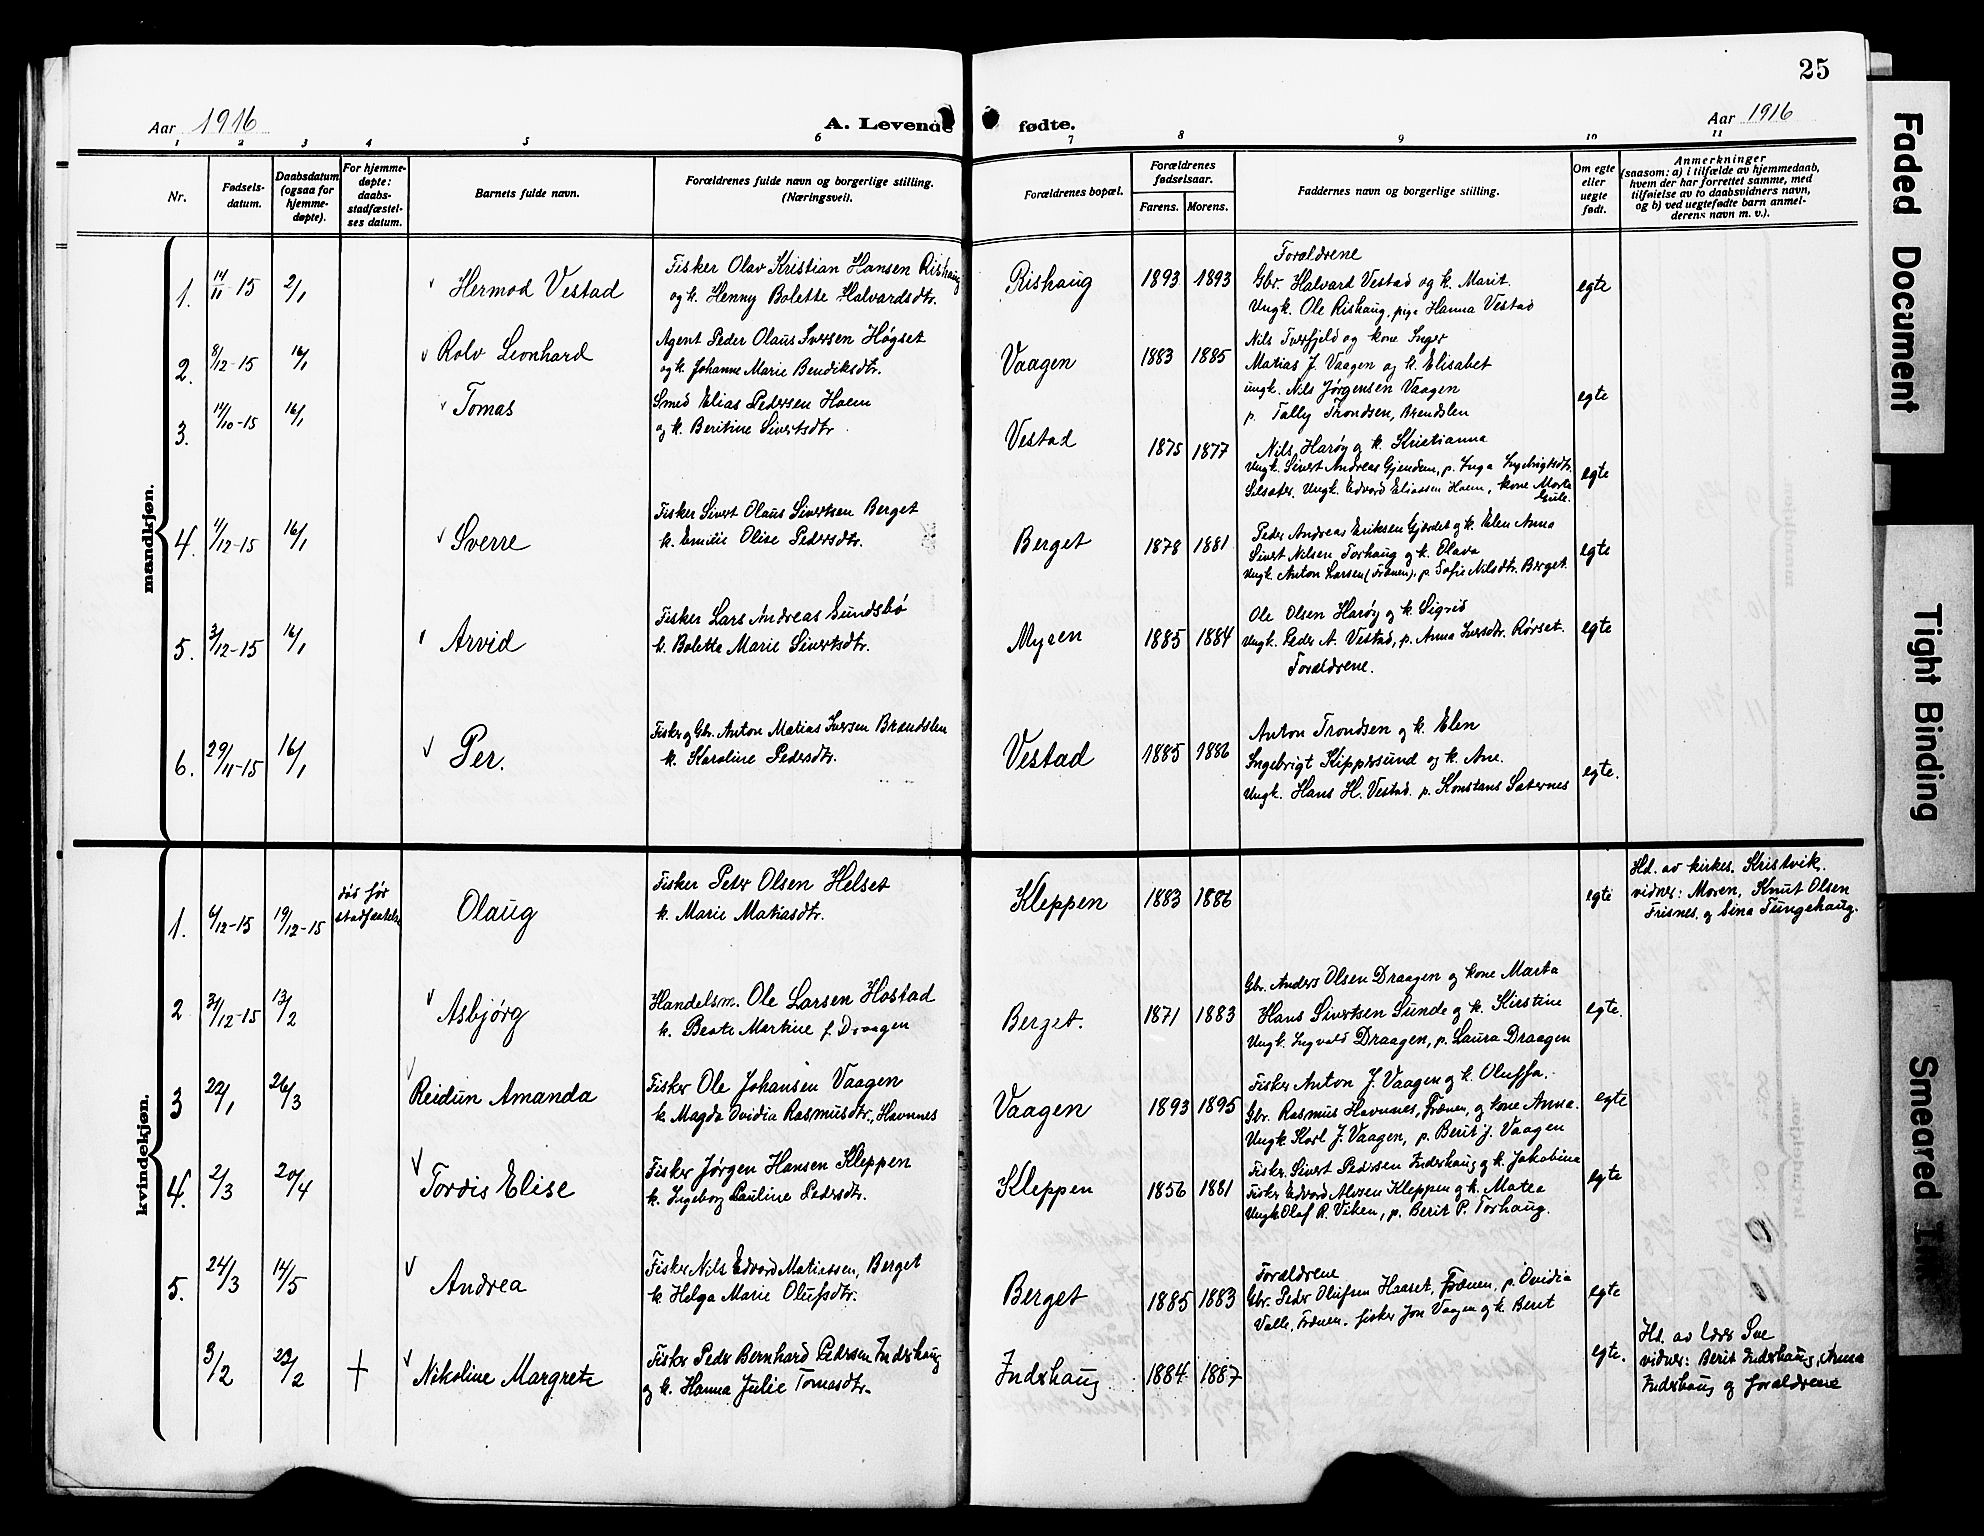 25
Aar 1916
A. Levende fødte.
Aar 1916
1 2 3 4 5 6 7 8 9 10 11
Nr.
Fødsels-
datum.
Daabsdatum
(ogsaa for
hjemme-
døpte).
For hjemme-
døpte:
daabs-
stadfæstel-
ses datum.
Barnets fulde navn.
Forældrenes fulde navn og borgerlige stilling.
(Næringsvei).
Forældrenes bopæl.
Forældrenes
fødselsaar.
Farens. Morens.
Faddernes navn og borgerlige stilling.
Om egte
eller
uegte
født.
Anmerkninger
(saasom: a) i tilfælde av hjemmedaab,
hvem der har forrettet samme, med
tilføielse av to daabsvidners navn,
og b) ved uegtefødte barn anmel-
derens navn m. v.).
mandkjøn.
1. 14/11-15 2/1 Hermod Vestad
Fisker Olav Kristian Hansen Rishaug
og k. Henny Bolette Halvardsdtr.
Rishaug 1893 1893
Forældrene
Gbr. Halvard Vestad og k. Marit.
Ungk. Ole Rishaug, pige Hanna Vestad
egte
2. 8/12-15 16/1 Rolv Leonhard
Agent Peder Olaus Iversen Høgset
og k. Johanne Marie Bendiksdtr.
Vaagen 1883 1885
Nils Tverfjeld og kone Inger
Matias J. Vaagen og k. Elisabet
ungk. Nils Jørgensen Vaagen
p. Tally Trondsen, Arendslen
egte
3. 14/10-15 16/1 Tomas
Smed Elias Pedersen Haem
og k. Beritine Sivertsdtr.
Vestad 1875 1877
Nils Harøy og k. Kristianna
Ungk. Sivert Andreas Gjendem, p. Inga Ingebrigtsdtr.
Silsæter. Ungk. Edvard Eliassen Haem, kone Marta
Gule.
egte
4. 4/12-15 16/1 Sverre
Fisker Sivert Olaus Sivertsen Berget
k. Emilie Olise Pedersdtr.
Berget 1878 1881
Peder Andreas Eriksen Gjerdet og k. Elen Anna
Sivert Nilsen Torhaug og k. Olava
Ungk. Anton Larsen (Frænen), p. Sofie Nilsdtr. Berget.
egte
5. 3/12-15 16/1 Arvid
Fisker Lars Andreas Sundsbø
k. Bolette Marie Sivertsdtr.
Myren 1885 1884
Ole Olsen Harøy og k. Sigrid
Ungk. Peder A. Vestad, p. Anna Iversdtr. Rørset.
Forældrene.
egte
6. 29/11-15 16/1 Per.
Fisker og Gbr. Anton Matias Iversen Brendslen
k. Karoline Pedersdtr.
Vestad 1885 1886
Anton Trondsen og k. Elen
Ingebrigt Kippersund og k. Ane.
Ungk. Hans H. Vestad. p. Konstans Sæternes
egte.
kvindekjøn.
1. 6/12-15 19/12-15
død før
stadfæstelse
Olaug
Fisker Peder Olsen Helset
k. Marie Matiasdtr.
Kleppen 1883 1886 egte
Hd. av kirkes. Kristvik.
vidner: Moren, Knut Olsen
Frisnes, og Sina Tungehaug.
2 31/12-15 13/2 Asbjørg
Handelsm. Ole Larsen Hostad
k. Beate Martine f. Draagen
Berget. 1871 1883
Gbr. Anders Olsen Draagen og kone Marta
Hans Sivertsen Sunde og k. Kirstine
Ungk. Ingvald Draagen, p. Laura Draagen
egte.
3 22/1 26/3 Reidun Amanda
Fisker Ole Johansen Vaagen
k. Magda Ovidia Rasmusdtr., Havnnes
Vaagen 1893 1895
Fisker Anton J. Vaagen og k. Oluffa.
Gbr. Rasmus Havnnes, Frænen, og kone Anna.
Ungk. Karl J. Vaagen, p. Berit J. Vaagen
egte
4. 2/3 20/4 Tordis Elise
Fisker Jørgen Hansen Kleppen
k. Ingeborg Pauline Pedersdtr.
Kleppen 1856 1881
Fisker Sivert Pedersen Inderhaug og k. Jakobina
Fisker Edvard Alvsen Kleppen og k. Matea
Ungk. Olaf R. Viken, p. Berit P. Torhaug.
egte
5. 24/3 14/5 Andrea
Fisker Nils Edvard Matiassen, Berget
k. Helga Marie Olufsdtr.
Berget 1885 1883
Forældrene
Gbr. Peder Olufsen Haaset, Frænen, p. Ovidia
Valle, Frænen. fisker Jon Vaagen og k. Berit
egte
3/2 23/2 + Nikoline Margrete
Fisker Peder Bernhard Pedersen Inderhaug
og k. Hanna Julie Tomasdtr.
Inderhaug 1884 1887 egte.
Hd. av lærer Sve
vidner: Berit Inderhaug, Anna
Inderhaug og forældrene
Faded Document
Tight Binding
Smeared Ink